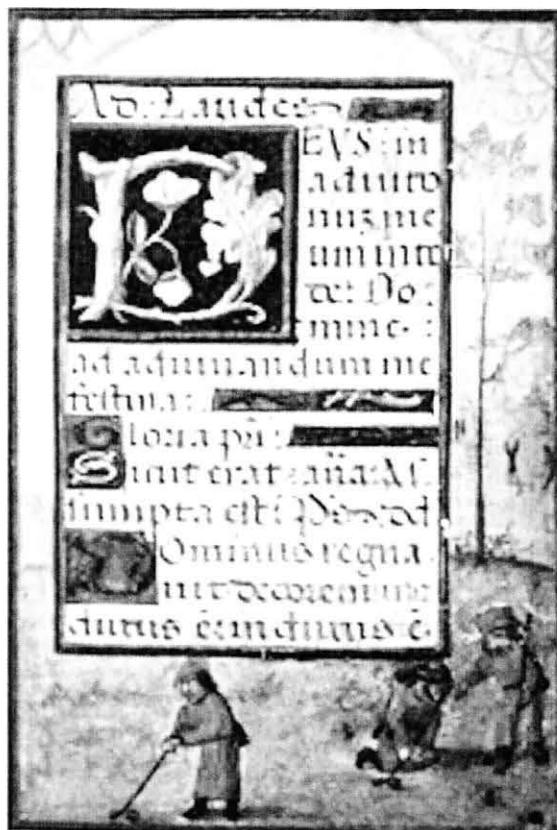 Ad. Laudes
DEVS: in
adiuto
riuz me
um inte
de: Do:
mine:
ad adiuuandum me
festina:
Gloria pr̄i:
Sicut erat: an̄a: As
sumpta est:
Dominus regna
uit decorem in
dutus ē: indutus ē